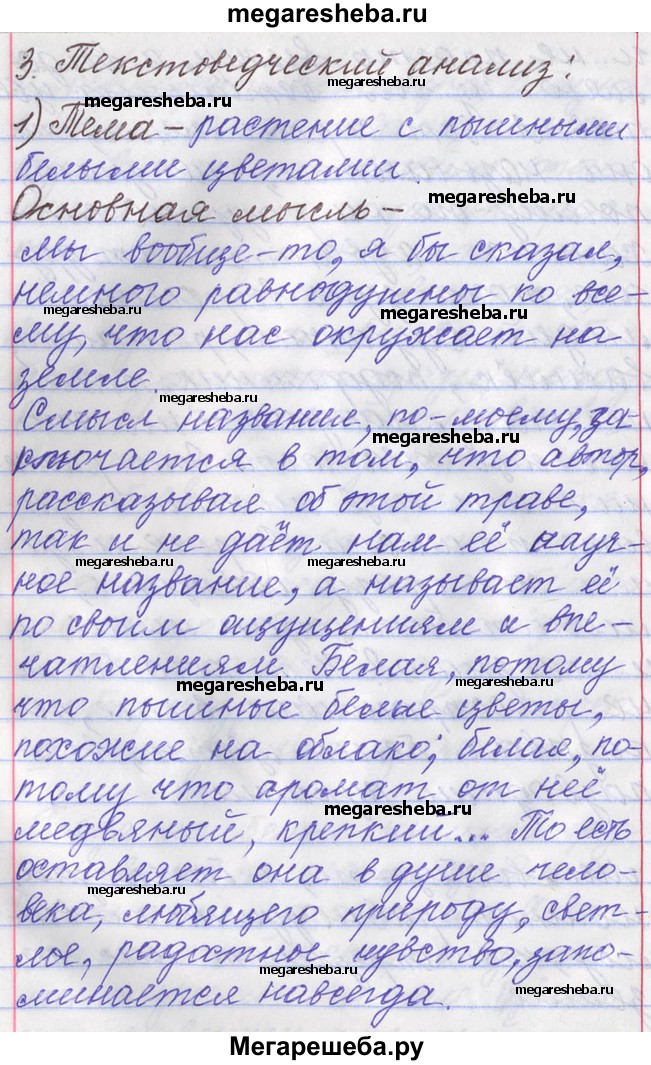 megaresheba.ru
3. Текстоведческий анализ:
megaresheba.ru
megaresheba.ru
1) Тема – растение с пышными
белыми цветами.
megaresheba.ru
Основная мысль –
Мы вообще-то, я бы сказал,
немного равнодушны ко все-
megaresheba.ru
megaresheba.ru
му, что нас окружает на
земле.
megaresheba.ru
Смысл названия, по-моему, за-
megaresheba.ru
ключается в том, что автор,
рассказывая об этой траве,
так и не даёт нам её науч-
megaresheba.ru
megaresheba.ru
ное название, а называет её
по своим ощущениям и впе-
чатлениям. Белая, потому
megaresheba.ru
megaresheba.ru
что пышные белые цветы,
похожие на облако; белая, по-
тому что аромат от неё
megaresheba.ru
медвяный, крепкий... То есть
оставляет она в душе чело-
megaresheba.ru
века, любящего природу, свет-
лое, радостное чувство, запо-
megaresheba.ru
минается навсегда.
megaresheba.ru
Мегарешеба.ру